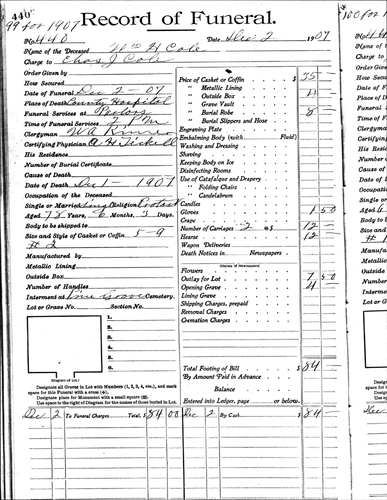 440
99 for 1907
Record of Funeral.
No. 440 Dec 2 1907
Name of the Deceased Wm H Cole
Charge to Chas J Cole
Order Given by
How Secured
Date of Funeral Dec 2 07
Place of Death County Hospital
Funeral Services at Parlors
Time of Funeral Services 2 PM
Clergyman W A
Certifying Physician A H Tickell
His Residence
Number of Burial Certificate
Cause of Death
Date of Death Dec 1 1907
Occupation of the Deceased
Single or Married Religion
Aged 72 Years, 6 Months, 3 Days.
Body to be shipped to
Size and Style of Casket or Coffin 5-9
# 2
Manufactured by
Metallic Lining
Outside Box
Number of Handles
Interment at Pine Grove Cemetery.
Lot or Grave No. Section No.
1.
2.
3.
4.
5.
6.
(Diagram of Lot.)
Designate all Graves in Lot with Numbers (1, 2, 3, 4, etc.), and mark
space for this Funeral with a cross (+).
Designate place for Monument with a small square (□).
Use space to the right of Diagram for the names of those buried in Lot.
Price of Casket or Coffin $ 35
" Metallic Lining
" Outside Box
" Grave Vault
" Burial Robe 8
" Burial Slippers and Hose
Engraving Plate
Embalming Body (with Fluid)
Washing and Dressing
Shaving
Keeping Body on Ice
Disinfecting Rooms
Use of Catafalque and Drapery
" Folding Chairs
" Candelabrum
Candles
Gloves 1 50
Crape
Number of Carriages 2 @ $ 12
Hearse 12
Wagon Deliveries
Death Notices in Newspapers
(Names of Newspapers)
Flowers
Outlay for Lot 7 50
Opening Grave 4
Lining Grave
Shipping Charges, prepaid
Removal Charges
Cremation Charges
Total Footing of Bill $ 84
By Amount Paid in Advance
Balance
Entered into Ledger, page or below.
Dec 2 To Funeral Charges Total, $ 84 00 Dec 2 By Cash $ 84
100 for